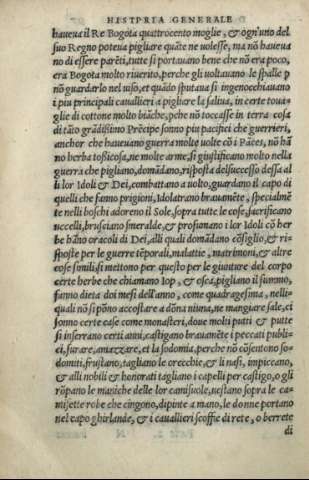 HISTPRIA GENERALE
haveua il Re Bogota quattrocento moglie, & ogn'uno del
suo Regno poteua pigliare quãte ne uolesse, ma nõ haueua
no di essere parẽti, tutti si portauano bene che nõ era poco,
era Bogota molto riuerito, perche gli uoltauano le spalle p
nõ guardarlo nel uiso, et quãdo sputaua si ingenocchiauano
i piu principali cauallieri a pigliare la saliua, in certe touа
glie di cottone molto biãche, pche nõ toccasse in terra cosa
di tãto grãdissimo Prẽcipe sonno piu pacifici che guerrieri,
anchor che haueuano guerra molte uolte cõ i Pãces, nõ hã
no herba tossicosa, ne molte arme, si giustificano molto nella
guerra che pigliano, domãdano, risposta del successo dessa al
li lor Idoli & Dei, combattano a uolto, guardano il capo di
quelli che fanno prigioni, Idolatrano brauamẽte, specialmẽ
te nelli boschi adoreno il Sole, sopra tutte le cose, sacrificano
uccelli, brusciano smeralde, & profumano i lor Idoli cõ her
be hãno oracoli di Dei, alli quali domãdano cõsiglio, & ri-
sposte per le guerre tẽporali, malattie, matrimoni, & altre
cose simili, si mettono per questo per le giunture del corpo
certe herbe che chiamano Iop, & osca, pigliano il summo,
fanno dieta doi mesi dell'anno, come quadragesima, nelli-
quali nõ si põno accostare a dõna niuna, ne mangiare sale, ci
sonno certe case come monasteri, doue molti putti & putte
si inserrano certi anni, castigano brauamẽte i peccati publi-
ci, furare, amazzare, et la sodomia, perche nõ cõsentono so-
domiti, frustano, tagliano le orecchie, & li nasi, impiccano,
& alli nobili & honorati tagliano i capelli per castigo, o gli
rõpano le maniche delle lor camisuole, uestano sopra le ca-
misette robe che cingono, dipinte a mano, le donne portano
nel capo ghirlande, & i cauallieri scoffie di rete, o berrete
di